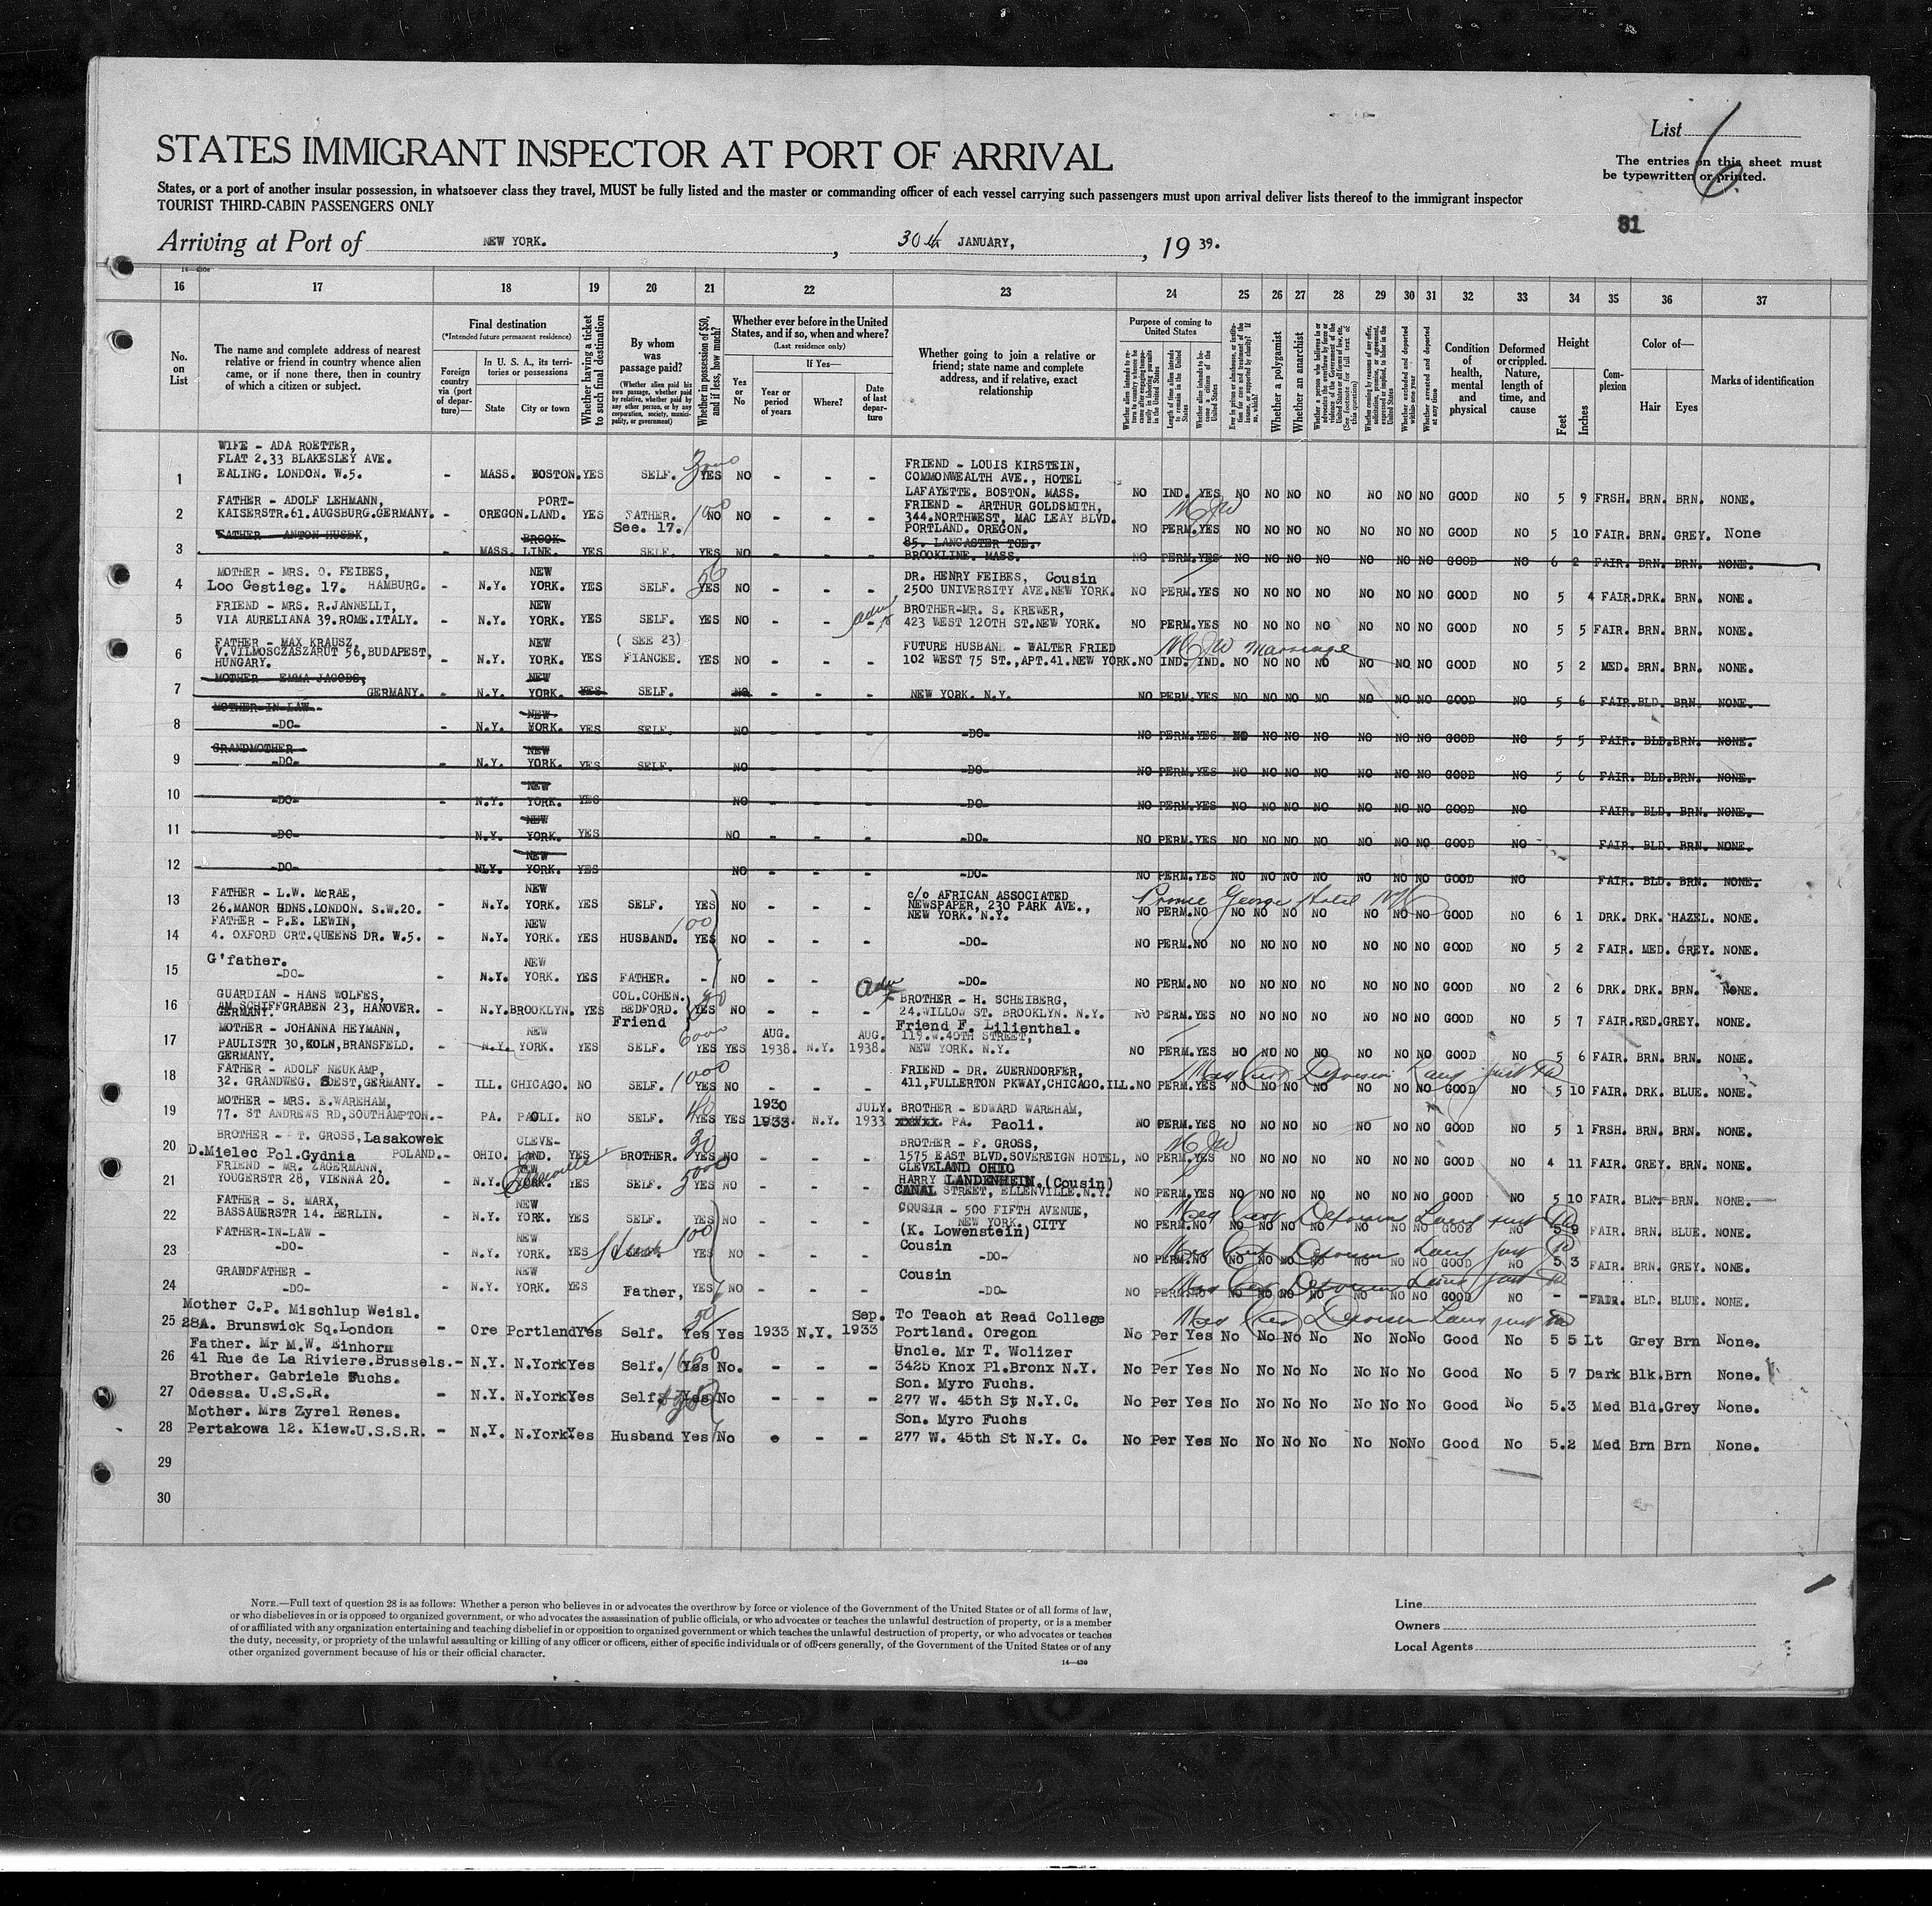 List 6
STATES IMMIGRANT INSPECTOR AT PORT OF ARRIVAL
The entries on this sheet must
be typewritten or printed.
States, or a port of another insular possession, in whatsoever class they travel, MUST be fully listed and the master or commanding officer of each vessel carrying such passengers must upon arrival deliver lists thereof to the immigrant inspector
TOURIST THIRD-CABIN PASSENGERS ONLY
81
Arriving at Port of NEW YORK. , 30th JANUARY, , 19 39.
16 17 18 19 20 21 22 23 24 25 26 27 28 29 30 31 32 33 34 35 36 37
No. on List
The name and complete address of nearest relative or friend in country whence alien came, or if none there, then in country of which a citizen or subject.
Final destination
(*Intended future permanent residence)
Foreign country via (port of departure)—
In U. S. A., its territories or possessions
State
City or town
Whether having a ticket to such final destination
By whom was passage paid?
(Whether alien paid his own passage, whether paid by relative, whether paid by any other person, or by any corporation, society, municipality, or government)
Whether in possession of $50, and if less, how much?
Whether ever before in the United States, and if so, when and where?
(Last residence only)
Yes or No
If Yes—
Year or period of years
Where?
Date of last departure
Whether going to join a relative or friend; state name and complete address, and if relative, exact relationship
Purpose of coming to United States
Length of time alien intends to remain in the United States
Whether alien intends to become a citizen of the United States
Whether a polygamist
Whether an anarchist
Condition of health, mental and physical
Deformed or crippled. Nature, length of time, and cause
Height
Feet
Inches
Complexion
Color of—
Hair
Eyes
Marks of identification
1 WIFE - ADA ROETTER,
FLAT 2.33 BLAKESLEY AVE.
EALING. LONDON. W.5. - MASS. BOSTON. YES SELF. YES NO - - - FRIEND - LOUIS KIRSTEIN,
COMMONWEALTH AVE., HOTEL
LAFAYETTE. BOSTON. MASS. NO IND. YES NO NO NO NO NO NO NO GOOD NO 5 9 FRSH. BRN. BRN. NONE.
2 FATHER - ADOLF LEHMANN,
KAISERSTR.61.AUGSBURG.GERMANY. - OREGON. PORT-LAND. YES FATHER. See. 17. NO 100 NO - - - FRIEND - ARTHUR GOLDSMITH,
344.NORTHWEST, MAC LEAY BLVD.
PORTLAND. OREGON. NO PERM. YES NO NO NO NO NO NO NO GOOD NO 5 10 FAIR. BRN. GREY. None
3 FATHER - ANTON HUSEK, - MASS. BROOK-LINE. YES SELF. YES NO - - - 85. LANCASTER TCE.
BROOKLINE. MASS. NO PERM. YES NO NO NO NO NO NO NO GOOD NO 6 2 FAIR. BRN. BRN. NONE.
4 MOTHER - MRS. O. FEIBES,
Loo Gestieg. 17. HAMBURG. - N.Y. NEW YORK. YES SELF. YES NO - - - DR. HENRY FEIBES, Cousin
2500 UNIVERSITY AVE.NEW YORK. NO PERM. YES NO NO NO NO NO NO NO GOOD NO 5 4 FAIR. DRK. BRN. NONE.
5 FRIEND - MRS. R.JANNELLI,
VIA AURELIANA 39.ROME.ITALY. - N.Y. NEW YORK. YES SELF. YES NO - - - BROTHER-MR. S. KREWER,
423 WEST 120TH ST.NEW YORK. NO PERM. YES NO NO NO NO NO NO NO GOOD NO 5 5 FAIR. BRN. BRN. NONE.
6 FATHER - MAX KRAUSZ,
V.VILMOSCZASZARUT 56,BUDAPEST,
HUNGARY. - N.Y. NEW YORK. YES (SEE 23) FIANCEE. YES NO - - - FUTURE HUSBAND - WALTER FRIED
102 WEST 75 ST.,APT.41.NEW YORK. NO IND. IND. NO NO NO NO NO NO NO GOOD NO 5 2 MED. BRN. BRN. NONE. Marriage
7 MOTHER - EMMA JACOBS,
GERMANY. - N.Y. NEW YORK. YES SELF. NO - - - NEW YORK. N.Y. NO PERM. YES NO NO NO NO NO NO NO GOOD NO 5 6 FAIR. BLD. BRN. NONE.
8 MOTHER-IN-LAW-
-DO- - N.Y. NEW YORK. YES SELF. NO - - - -DO- NO PERM. YES NO NO NO NO NO NO NO GOOD NO 5 5 FAIR. BLD. BRN. NONE.
9 GRANDMOTHER -
-DO- - N.Y. NEW YORK. YES SELF. NO - - - -DO- NO PERM. YES NO NO NO NO NO NO NO GOOD NO 5 6 FAIR. BLD. BRN. NONE.
10 -DO- - N.Y. NEW YORK. YES NO - - - -DO- NO PERM. YES NO NO NO NO NO NO NO GOOD NO FAIR. BLD. BRN. NONE.
11 -DO- - N.Y. NEW YORK. YES NO - - - -DO- NO PERM. YES NO NO NO NO NO NO NO GOOD NO FAIR. BLD. BRN. NONE.
12 -DO- - NLY. NEW YORK. YES NO - - - -DO- NO PERM. YES NO NO NO NO NO NO NO GOOD NO FAIR. BLD. BRN. NONE.
13 FATHER - L.W. McRAE,
26.MANOR HDNS.LONDON. S.W.20. - N.Y. NEW YORK. YES SELF. YES NO - - - c/o AFRICAN ASSOCIATED
NEWSPAPER, 230 PARK AVE.,
NEW YORK. N.Y. Prince George Hotel NO PERM. NO NO NO NO NO NO NO NO GOOD NO 6 1 DRK. DRK. HAZEL. NONE.
14 FATHER - P.E. LEWIN,
4. OXFORD CRT.QUEENS DR. W.5. - N.Y. NEW YORK. YES HUSBAND. 100 YES NO - - - -DO- NO PERM. NO NO NO NO NO NO NO NO GOOD NO 5 2 FAIR. MED. GREY. NONE.
15 G'father.
-DO- - N.Y. NEW YORK. YES FATHER. - NO - - -DO- NO PERM. NO NO NO NO NO NO NO NO GOOD NO 2 6 DRK. DRK. BRN. NONE.
16 GUARDIAN - HANS WOLFES,
AM SCHIFFGRABEN 23, HANOVER.
GERMANY. - N.Y. BROOKLYN. YES COL.COHEN. BEDFORD. Friend YES NO - - - BROTHER - H. SCHEIBERG,
24.WILLOW ST. BROOKLYN. N.Y. NO PERM. YES NO NO NO NO NO NO NO GOOD NO 5 7 FAIR. RED. GREY. NONE.
17 MOTHER - JOHANNA HEYMANN,
PAULISTR 30,KOLN,BRANSFELD.
GERMANY. - N.Y. NEW YORK. YES SELF. 6000 YES YES AUG. 1938. N.Y. AUG. 1938. Friend F. Lilienthal.
119.W.40TH STREET,
NEW YORK. N.Y. NO PERM. YES NO NO NO NO NO NO NO GOOD NO 5 6 FAIR. BRN. BRN. NONE.
18 FATHER - ADOLF NEUKAMP,
32. GRANDWEG. SOEST,GERMANY. - ILL. CHICAGO. NO SELF. 1000 YES NO - - - FRIEND - DR. ZUERNDORFER,
411,FULLERTON PKWAY,CHICAGO.ILL. NO PERM. YES NO NO NO NO NO NO NO GOOD NO 5 10 FAIR. DRK. BLUE. NONE.
19 MOTHER - MRS. E.WAREHAM,
77. ST ANDREWS RD,SOUTHAMPTON. - PA. PAOLI. NO SELF. YES YES 1930 1933. N.Y. JULY. 1933 BROTHER - EDWARD WAREHAM,
xxxxx. PA. Paoli. NO PERM. YES NO NO NO NO NO NO NO GOOD NO 5 1 FRSH. BRN. BRN. NONE.
20 BROTHER - T. GROSS, Lasakowek
D.Mielec Pol.Gydnia POLAND. - OHIO. CLEVE-LAND. YES BROTHER. 30 YES NO - - - BROTHER - F. GROSS,
1575 EAST BLVD.SOVEREIGN HOTEL,
CLEVELAND OHIO NO PERM. YES NO NO NO NO NO NO NO GOOD NO 4 11 FAIR. GREY. BRN. NONE.
21 FRIEND - MR. ZAGERMANN,
YOUGERSTR 28, VIENNA 20. - N.Y. NEW YORK. Ellenville YES SELF. 5000 YES NO - - - HARRY LANDENHEIM.(Cousin)
CANAL STREET, ELLENVILLE.N.Y. NO PERM. YES NO NO NO NO NO NO NO GOOD NO 5 10 FAIR. BLK. BRN. NONE.
22 FATHER - S. MARX,
BASSAUERSTR 14. BERLIN. - N.Y. NEW YORK. YES SELF. YES NO - - - COUSIN - 500 FIFTH AVENUE,
NEW YORK. CITY
(K. Lowenstein) NO PERM. NO NO NO NO NO NO NO NO GOOD NO 5 9 FAIR. BRN. BLUE. NONE.
23 FATHER-IN-LAW -
-DO- - N.Y. NEW YORK. YES 100 YES NO - - - Cousin
-DO- NO PERM. NO NO NO NO NO NO NO NO GOOD NO 5 3 FAIR. BRN. GREY. NONE.
24 GRANDFATHER -
-DO- - N.Y. NEW YORK. YES Father, NO - - - Cousin
-DO- NO PERM. NO NO NO NO NO NO NO NO GOOD NO - - FAIR. BLD. BLUE. NONE.
25 Mother C.P. Mischlup Weisl.
28A. Brunswick Sq.London - Ore Portland Yes Self. 50 Yes Yes 1933 N.Y. Sep. 1933 To Teach at Read College
Portland. Oregon No Per Yes No No No No No No No Good No 5 5 Lt Grey Brn None.
26 Father. Mr M.W. Einhorn
41 Rue de La Riviere.Brussels. - N.Y. N.York Yes Self. Yes No. - - - Uncle. Mr T. Wolizer
3425 Knox Pl.Bronx N.Y. No Per Yes No No No No No No No Good No 5 7 Dark Blk. Brn None.
27 Brother. Gabriele Fuchs.
Odessa. U.S.S.R. - N.Y. N.York Yes Self. Yes No - - - Son. Myro Fuchs.
277 W. 45th St N.Y.C. No Per Yes No No No No No No No Good No 5.3 Med Bld. Grey None.
28 Mother. Mrs Zyrel Renes.
Pertakowa 12. Kiew.U.S.S.R. - N.Y. N.York Yes Husband Yes No - - - Son. Myro Fuchs
277 W. 45th St N.Y. C. No Per Yes No No No No No No No Good No 5.2 Med Brn Brn None.
29
30
NOTE.—Full text of question 28 is as follows: Whether a person who believes in or advocates the overthrow by force or violence of the Government of the United States or of all forms of law,
or who disbelieves in or is opposed to organized government, or who advocates the assassination of public officials, or who advocates or teaches the unlawful destruction of property, or is a member
of or affiliated with any organization entertaining and teaching disbelief in or opposition to organized government or which teaches the unlawful destruction of property, or who advocates or teaches
the duty, necessity, or propriety of the unlawful assaulting or killing of any officer or officers, either of specific individuals or of officers generally, of the Government of the United States or of any
other organized government because of his or their official character.
14—430
Line
Owners
Local Agents